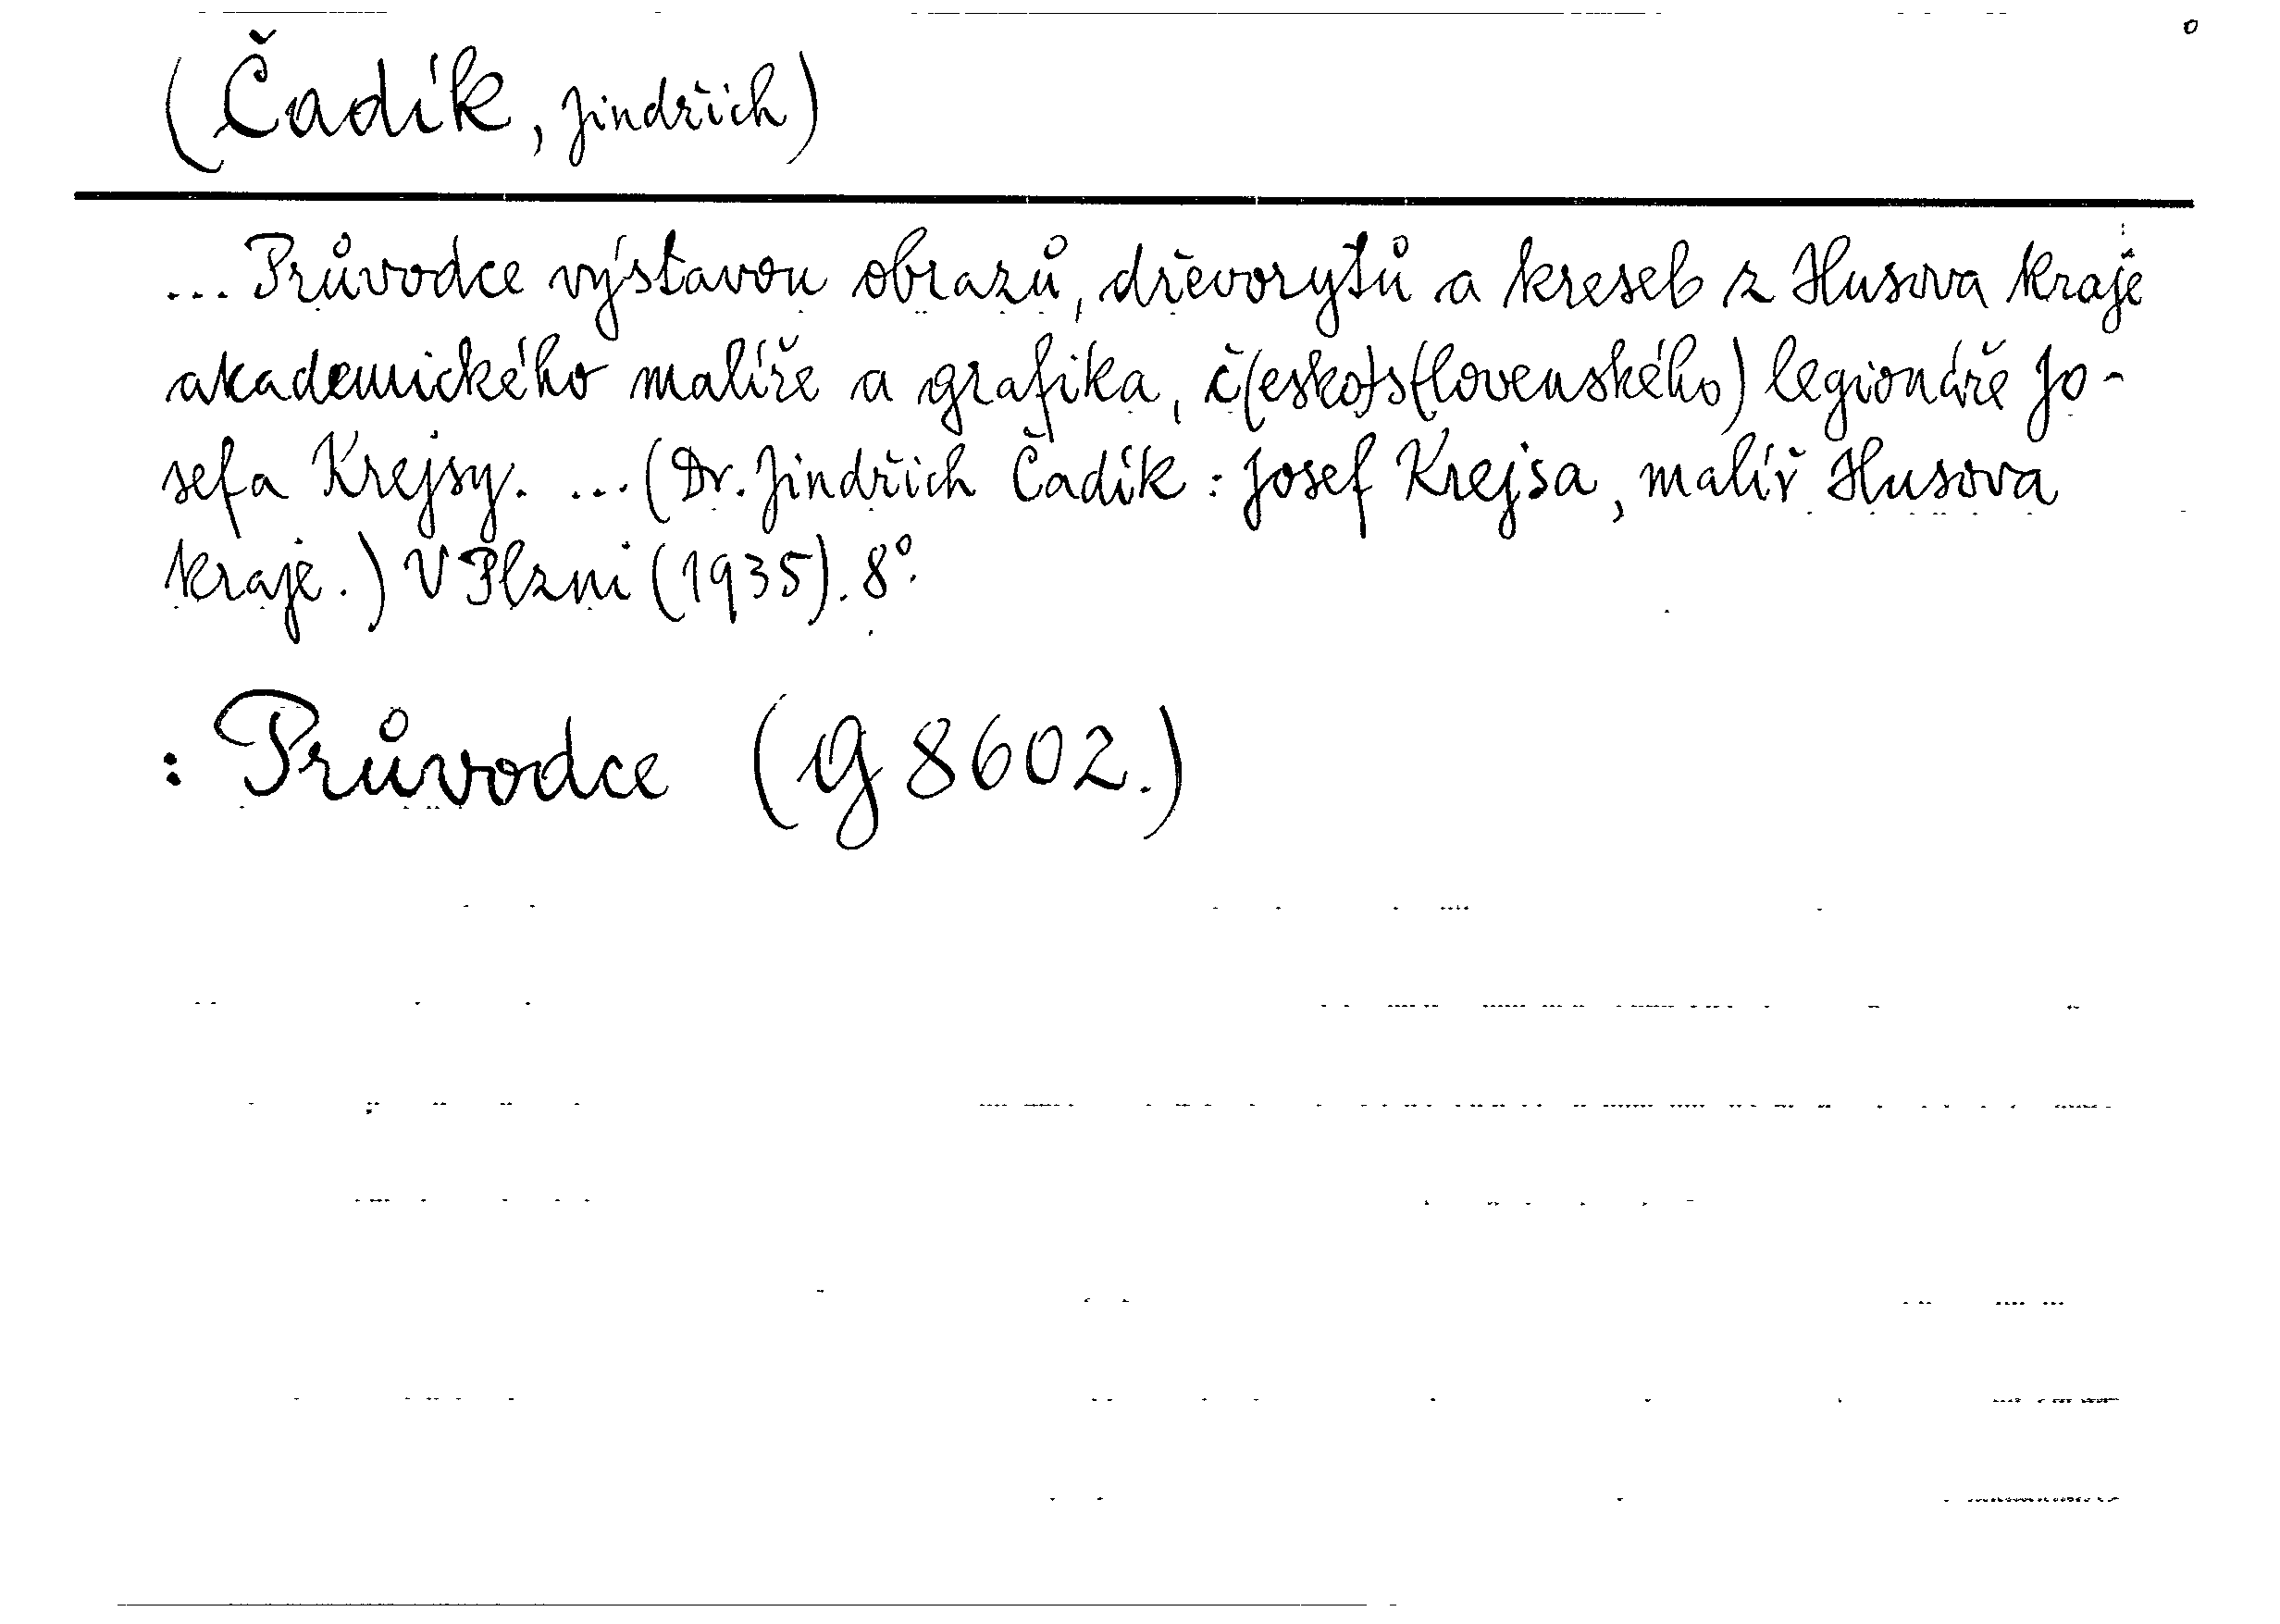 (Čadík, Jindřich)
... Průvodce výstavou obrazů, dřevorytů a kreseb z Husova kraje
akademického malíře a grafika, č(esko)s(lovenského) legionáře Jo-
sefa Krejsy. ... (Dr. Jindřich Čadík: Josef Krejsa, malíř Husova
kraje.) V Plzni (1935). 8°.
: Průvodce (G 8602.)